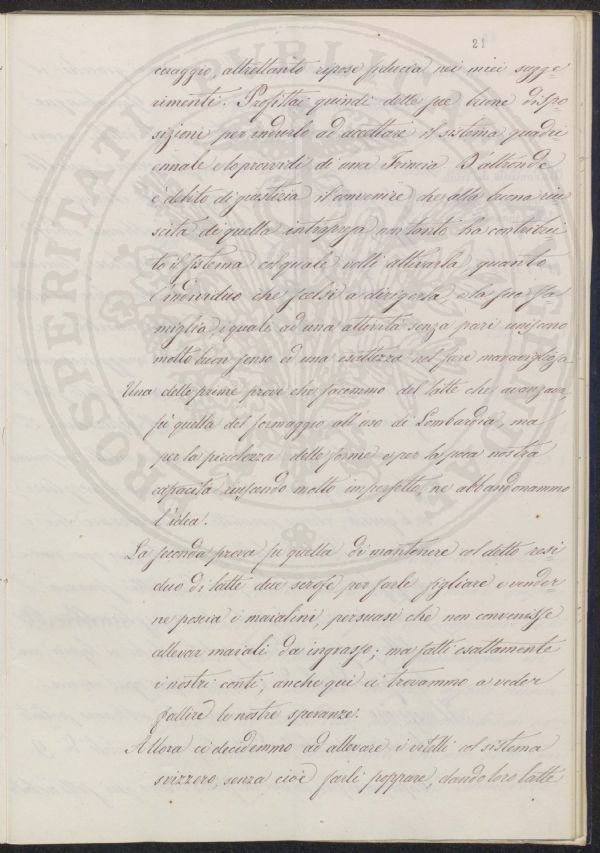 21
coraggio, altrettanto ripose fiducia nei miei sugge-
rimenti. Profittai quindi delle sue buone dispo
sizioni per indurlo ad accettare il sistema quadri
ennale e lo provvidi di una Trincia. D'altronde
è debito di giustizia il convenire che alla buona riu
scita di quella intrapresa non tanto ha contribui
to il sistema col quale volli attivarla quanto
l'individuo che scelsi a dirigerla, e la sua fa
miglia, i quali ad una attività senza pari uniscono
molto buon senso ed una esattezza nel fare maravigliosa.
Una delle prime prove che facemmo del latte che avanzava
fù quella del formaggio all'uso di Lombardia, ma
per la piccolezza delle forme e per la poca nostra
capacità riuscendo molto imperfetto, ne abbandonammo
l'idea.
La seconda prova fù quella di mantenere col detto resi
duo di latte due scrofe per farle figliare e vender-
ne poscia i maialini, persuasi che non convenisse
allevar maiali da ingrasso; ma fatti esattamente
i nostri conti, anche qui ci trovammo a veder
fallire le nostre speranze.
Allora ci decidemmo ad allevare i vitelli col sistema
svizzero, senza cioè farli poppare, dando loro latte
PROSPERITATI PUBLICAE